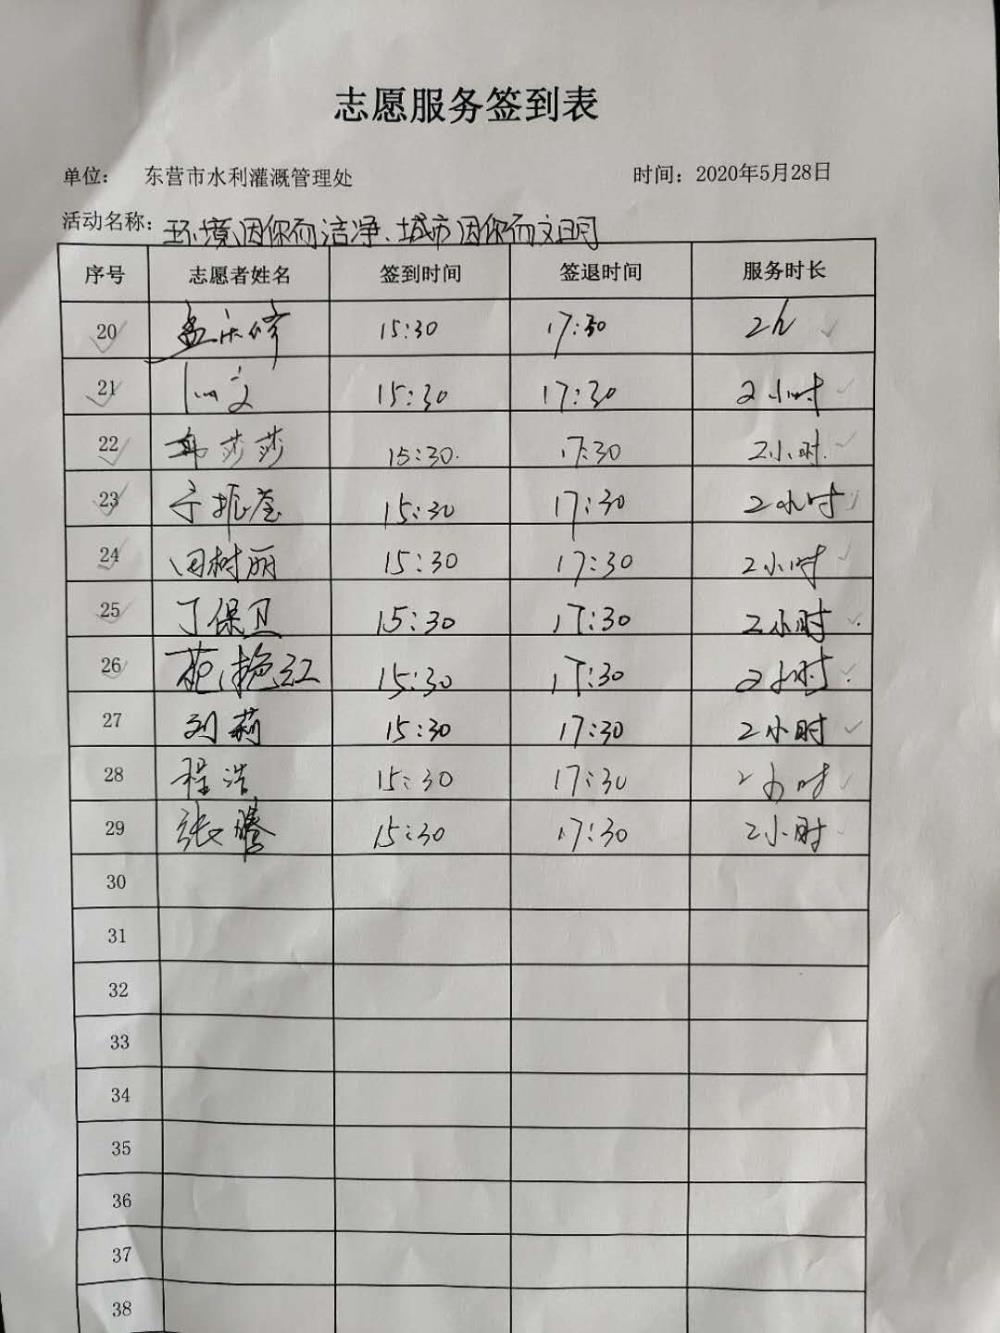 志愿服务签到表
单位： 东营市水利灌溉管理处 时间：2020年5月28日
活动名称：环境因你而洁净、城市因你而文明
序号 志愿者姓名 签到时间 签退时间 服务时长
20 15:30 17:30 2h
21 15:30 17:30 2小时
22 莎莎 15:30. 17:30 2小时.
23 于振莹 15:30 17:30 2小时
24 田树丽 15:30 17:30 2小时
25 丁保卫 15:30 17:30 2小时.
26 范艳红 15:30 17:30 2小时.
27 刘莉 15:30 17:30 2小时
28 程浩 15:30 17:30 2小时
29 张腾 15:30 17:30 2小时
30
31
32
33
34
35
36
37
38